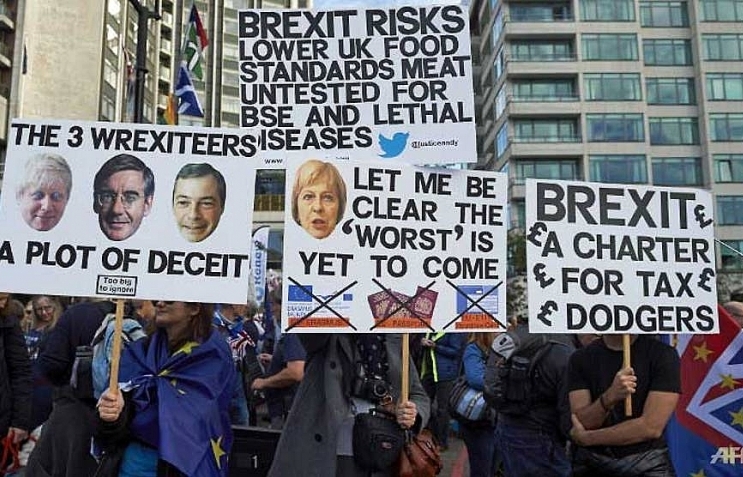 BREXIT RISKS
LOWER UK FOOD
STANDARDS MEAT
UNTESTED FOR
BSE AND LETHAL
DISEASES
@justiceandy
THE 3 WREXITEERS
A PLOT OF DECEIT
Too big
to ignore
LET ME BE
CLEAR THE
'WORST' IS
YET TO COME
BREXIT£
£A CHARTER
£ FOR TAX£
£ DODGERS
AFP